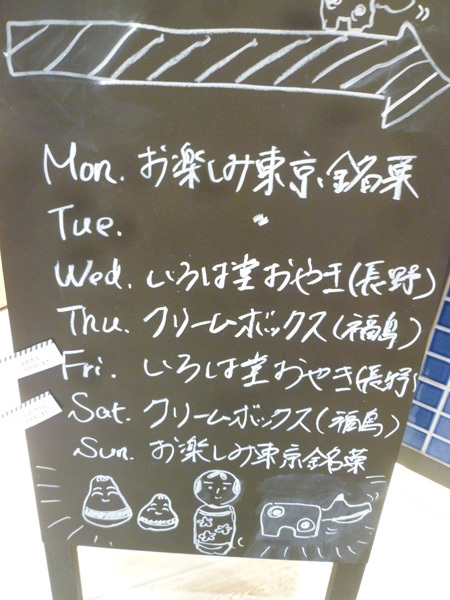 Mon. お楽しみ東京銘菓
Tue. 〃
Wed. いろは堂おやき(長野)
Thu. クリームボックス(福島)
Fri. いろは堂おやき(長野)
Sat. クリームボックス(福島)
Sun. お楽しみ東京銘菓